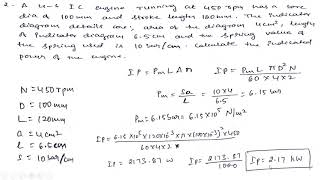 2. A 4-S IC engine running at 450 rpm has a bore
dia of 100mm and stroke length 120mm. The Indicator
diagram details are; area of the diagram 4cm², length
of Indicator diagram 6.5cm and the spring value of
the spring used is 10 bar/cm. Calculate the Indicated
power of the engine.
N = 450 rpm
D = 100mm
L = 120mm
a = 4cm²
l = 6.5cm
S = 10 bar/cm
IP = Pm L A n
IP = Pm L π D² N
60 × 4 × 2
Pm = sa = 10×4 = 6.15 bar
l 6.5
Pm = 6.15 bar = 6.15 × 10⁵ N/m²
IP = 6.15×10⁵ × (120×10⁻³) × π × (100×10⁻³)² × 450
60×4×2
IP = 2173.87 W
IP = 2173.87
1000
IP = 2.17 kW